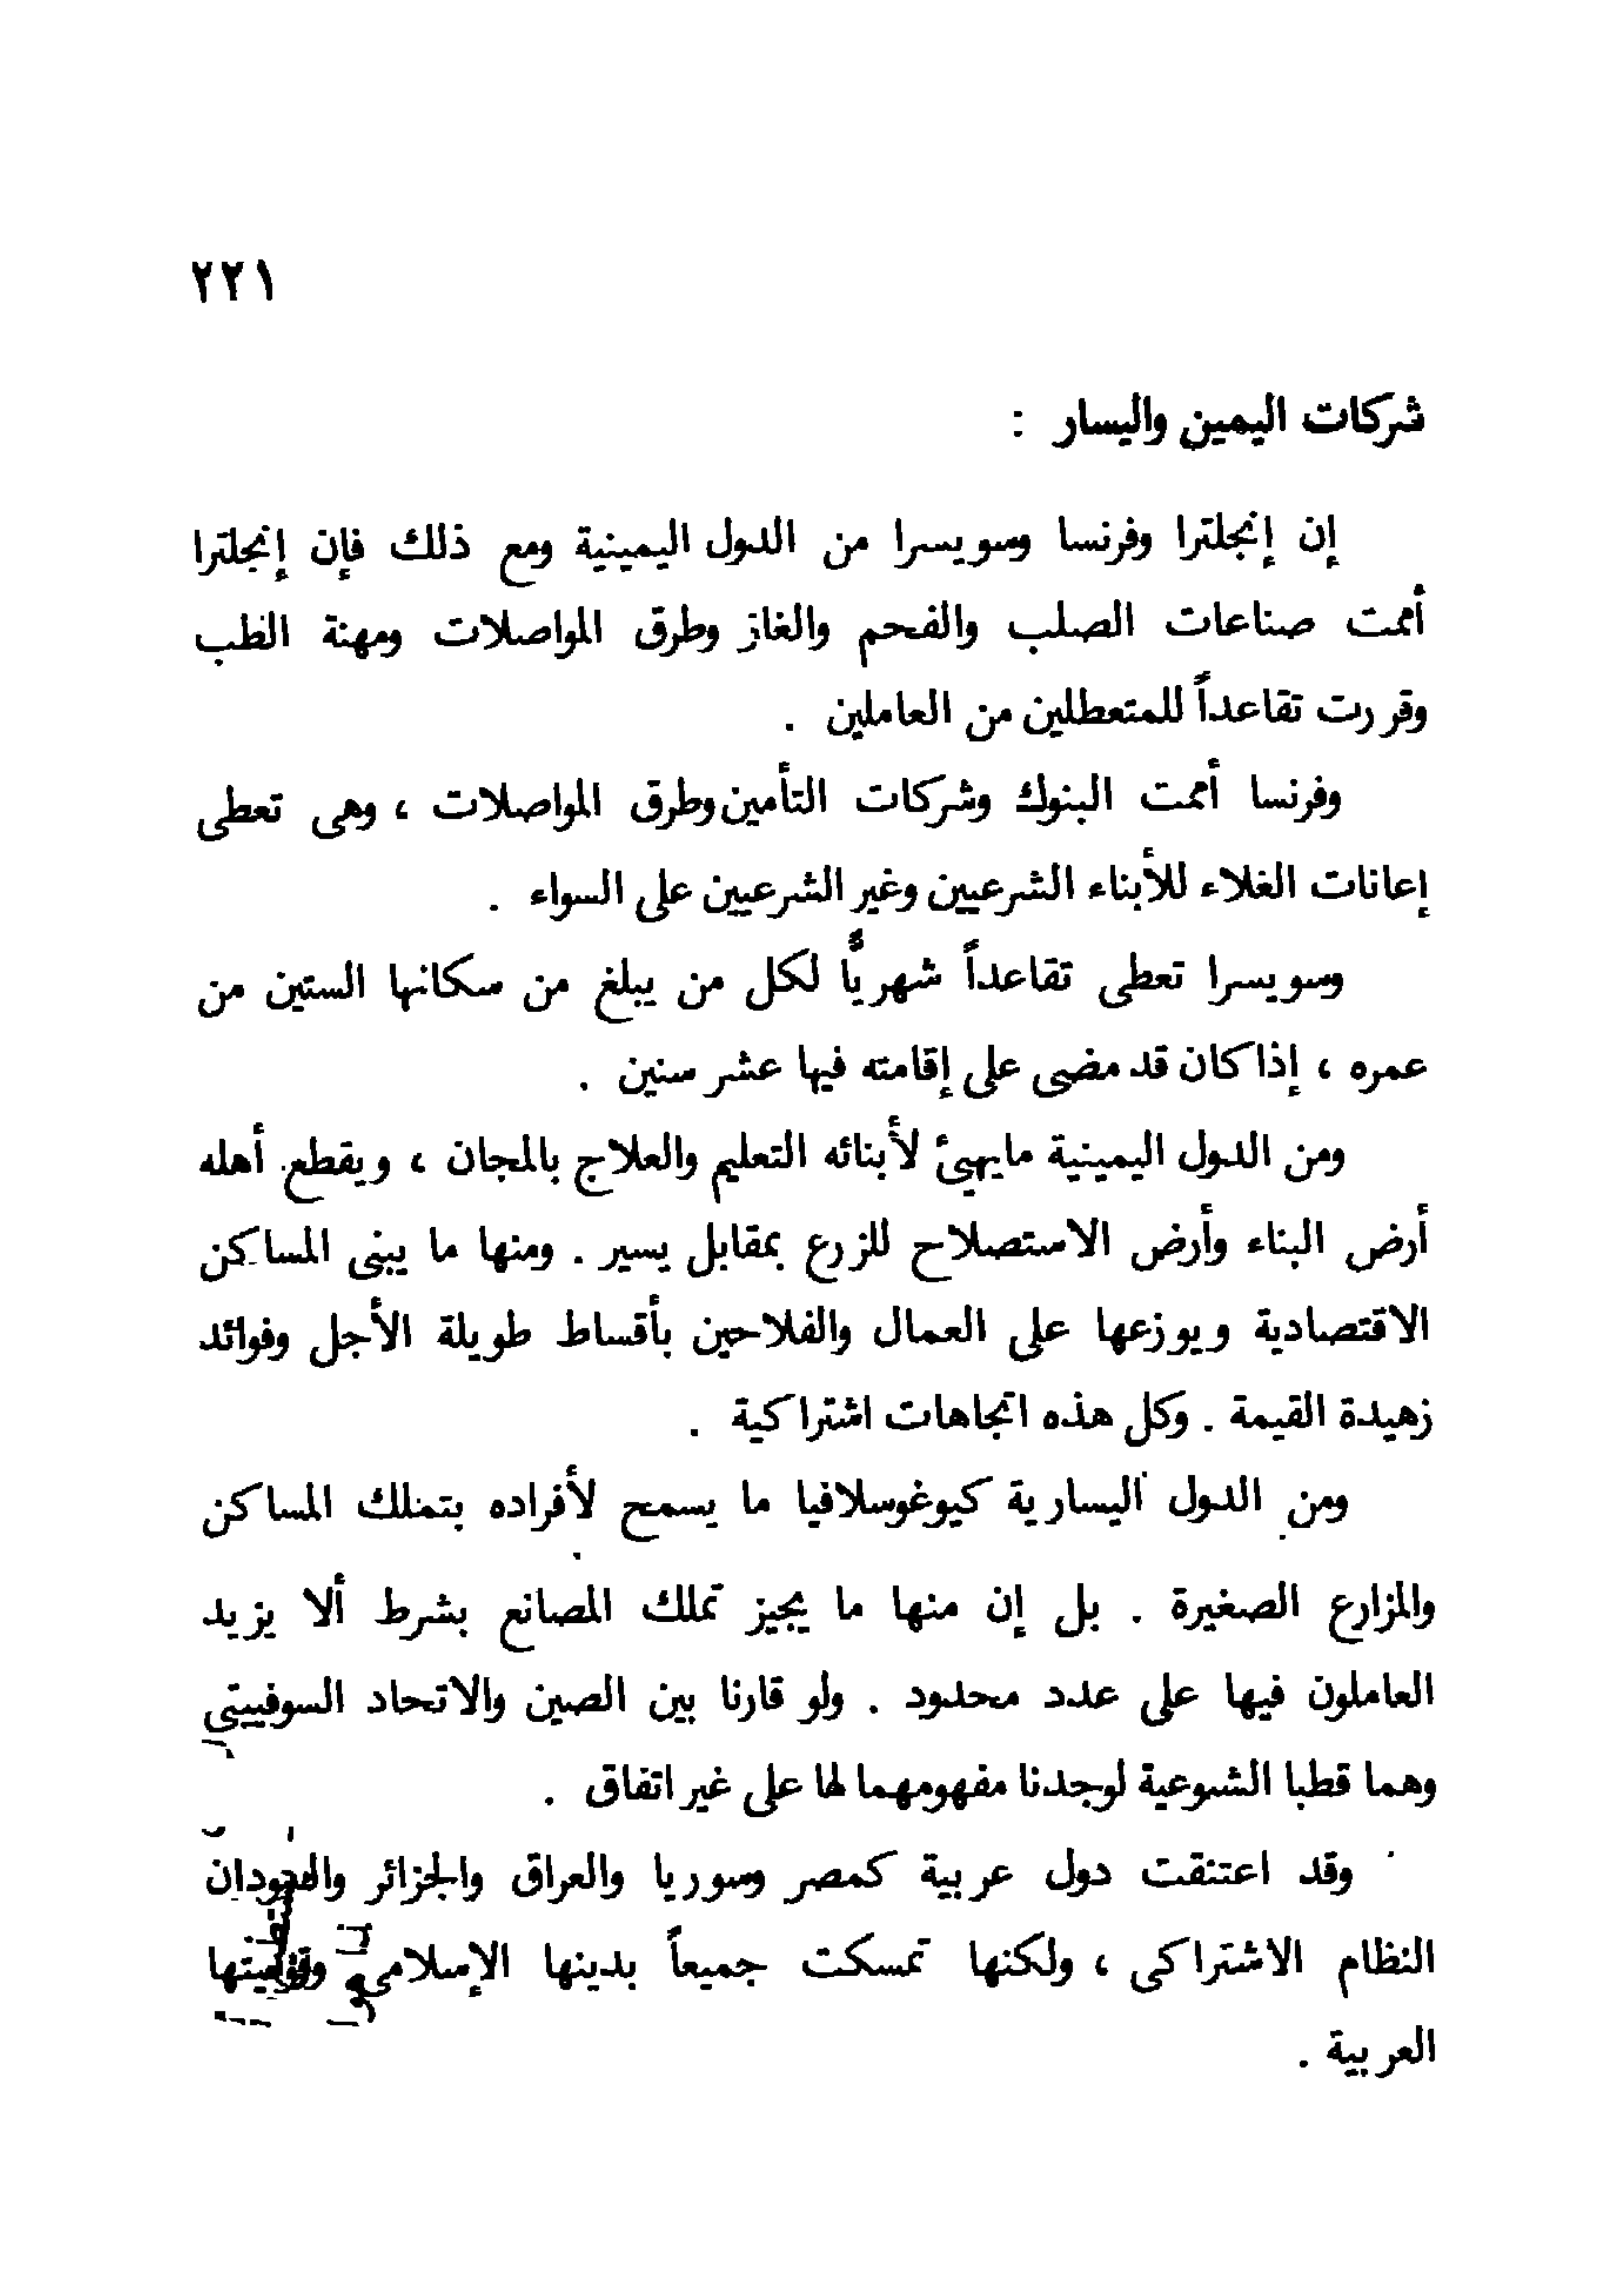 ٢٢١
شركات اليمين واليسار :
إن إنجلترا وفرنسا وسويسرا من الدول اليمينية ومع ذلك فإن إنجلترا
أممت صناعات الصلب والفحم والغاز وطرق المواصلات ومهنة الطب
وقررت تقاعداً للمتعطلين من العاملين .
وفرنسا أممت البنوك وشركات التأمين وطرق المواصلات ، وهى تعطى
إعانات الغلاء للأبناء الشرعيين وغير الشرعيين على السواء .
وسويسرا تعطى تقاعداً شهريًّا لكل من يبلغ من سكانها الستين من
عمره ، إذا كان قد مضى على إقامته فيها عشر سنين .
ومن الدول اليمينية مايهيئ لأبنائه التعليم والعلاج بالمجان ، ويقطع أهله
أرض البناء وأرض الاستصلاح للزرع بمقابل يسير . ومنها ما يبنى المساكن
الاقتصادية ويوزعها على العمال والفلاحين بأقساط طويلة الأجل وفوائد
زهيدة القيمة . وكل هذه اتجاهات اشتراكية .
ومن الدول اليسارية كيوغوسلافيا ما يسمح لأفراده بتملك المساكن
والمزارع الصغيرة . بل إن منها ما يجيز تملك المصانع بشرط ألا يزيد
العاملون فيها على عدد محدود . ولو قارنا بين الصين والاتحاد السوفييتى
وهما قطبا الشيوعية لوجدنا مفهومهما لها على غير اتفاق .
وقد اعتنقت دول عربية كمصر وسوريا والعراق والجزائر والسودان
النظام الاشتراكى ، ولكنها تمسكت جميعاً بدينها الإسلامى وقوميتها
العربية .